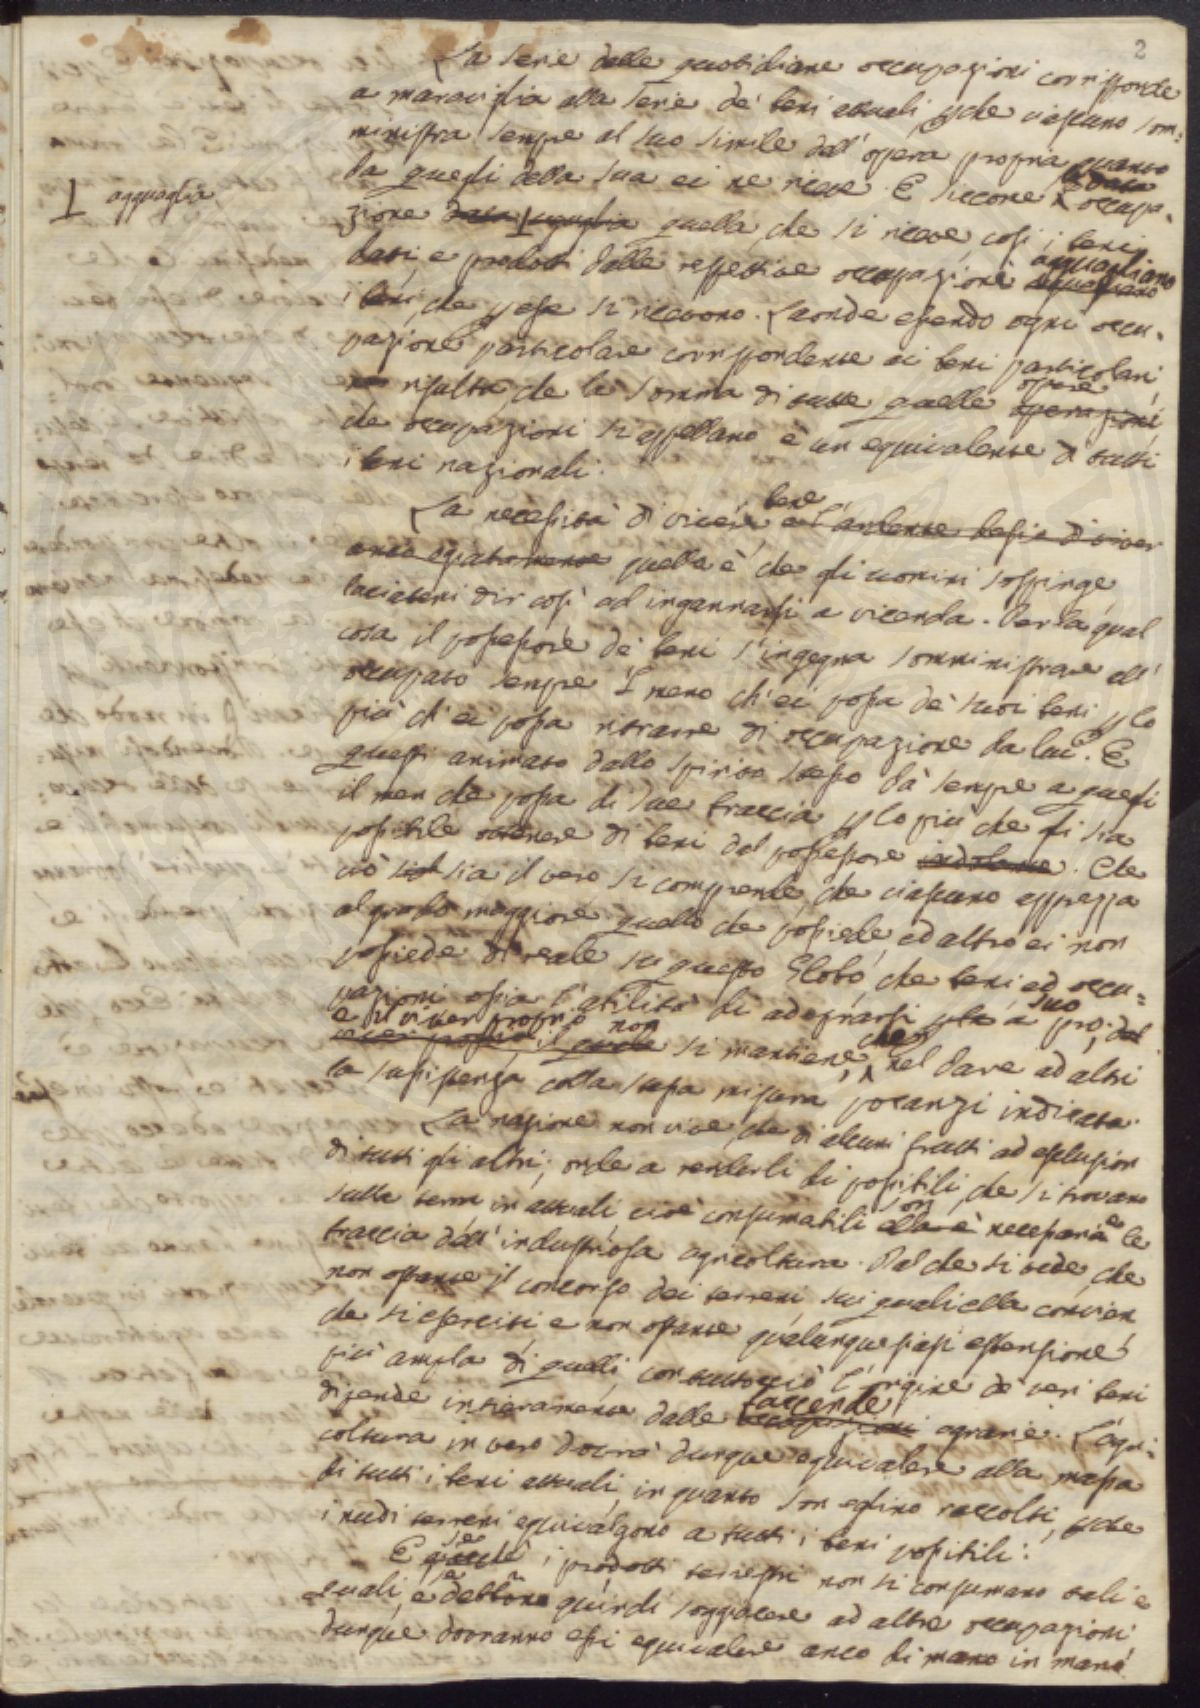 2
La serie delle quotidiane occupazioni corrisponde
a maraviglia alla serie de' beni attuali, che ciascuno som-
ministra sempre al suo simile dall'opera propria quanto
da quegli della sua ei ne riceve. E siccome occupa-
⊥ agguaglia
zione data uguaglia quella, che si riceve così i beni
dati, e prodotti dalle respettive occupazioni agguagliano
i beni, che p esse si ricevono. Laonde essendo ogni occu-
pazione particolare corrispondente ai beni particolari
risulta, che la somma di tutte quelle opere operazioni
che occupazioni si appellano è un equivalente di tutti
i beni nazionali.
La necessità di vivere bene e l'ardente di viver
agiatamente quella è che gli uomini sospinge
taciturni dir così ad ingannarsi a vicenda. Per la qual
cosa il possessore de' beni s'ingegna somministrare all'
occupato sempre il meno ch'ei possa de' suoi beni p lo
più ch'ei possa ritrarre di occupazione da lui. E
questi animato dallo spirito stesso dà sempre a quegli
il men che possa di sue braccia p lo più che gli sia
possibile ottenere di beni dal possessore indolente. Che
ciò sia il vero si comprende, che ciascuno apprezza
al grado maggiore quello che possiede, ed altro ei non
possiede di reale su questo Globo, che beni ed occu-
pazioni ossia l'abilità di adoprarsi a suo pro;
e il viver proprio non si mantiene, che nel dare ad altri
la sussistenza colla stessa misura pocanzi indicata.
La nazione non vive che di alcuni frutti ad esclusion
di tutti gli altri; onde a renderli di possibili, che si trovano
sulla terra in attuali cioè consumabili son necessarie le
braccia dell'industriosa agricoltura. Dal che si vede, che
non ostante il concorso dei terreni sui quali ella convien
che si eserciti e non ostante qualunque siasi estensione
più ampla di quelli con tuttociò l'origine de' veri beni
dipende intieramente dalle faccende occupazioni agrarie. L'agri-
coltura in vero dovrà dunque equivalere alla massa
di tutti i beni attuali, in quanto son eglino raccolti,
i nudi terreni equivalgono a tutti i beni possibili.
E se i prodotti terrestri non si consumano tali e
quali, e debbono quindi soggiacere ad altre occupazioni
dunque dovranno essi equivalere anco di mano in mano